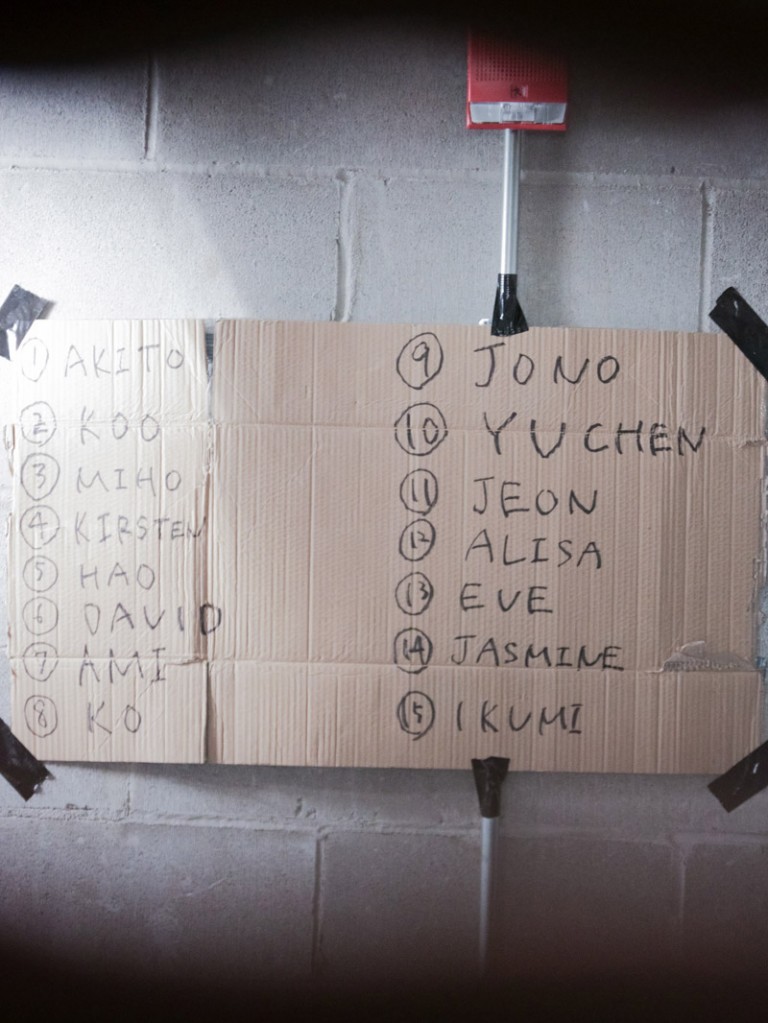 ① AKITO
② KOO
③ MIHO
④ KIRSTEN
⑤ HAO
⑥ DAVID
⑦ AMI
⑧ KO
⑨ JONO
⑩ YUCHEN
⑪ JEON
⑫ ALISA
⑬ EVE
⑭ JASMINE
⑮ IKUMI